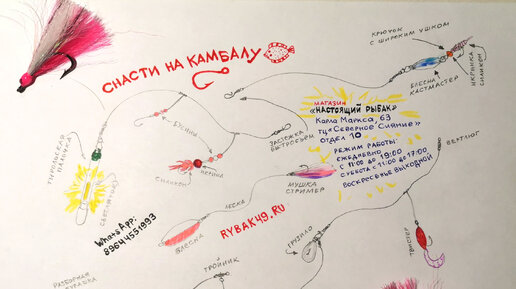 СНАСТИ НА КАМБАЛУ
КРЮЧОК
С ШИРОКИМ УШКОМ
БЛЕСНА
КАСТМАСТЕР
ИКРИНКА
СИЛИКОН
БУСИНЫ
ЗАСТЕЖКА
БЫСТРОСЪЕМ
МАГАЗИН
«НАСТОЯЩИЙ РЫБАК»
Карла Маркса, 63
ТЦ «Северное Сияние»
ОТДЕЛ 10
РЕЖИМ РАБОТЫ:
ЕЖЕДНЕВНО
С 11:00 ДО 19:00
СУББОТА С 11:00 ДО 17:00
ВОСКРЕСЕНЬЕ ВЫХОДНОЙ
ВЕРТЛЮГ
СИЛИКОН
СВЕТЛЯЧОК
WhatsApp:
89644551993
МУШКА
СТРИМЕР
ЛЕСКА
БЛЕСНА
RYBAK49.RU
ГРУЗИЛО
ТВИСТЕР
ТРОЙНИК
РАЗБОРНАЯ